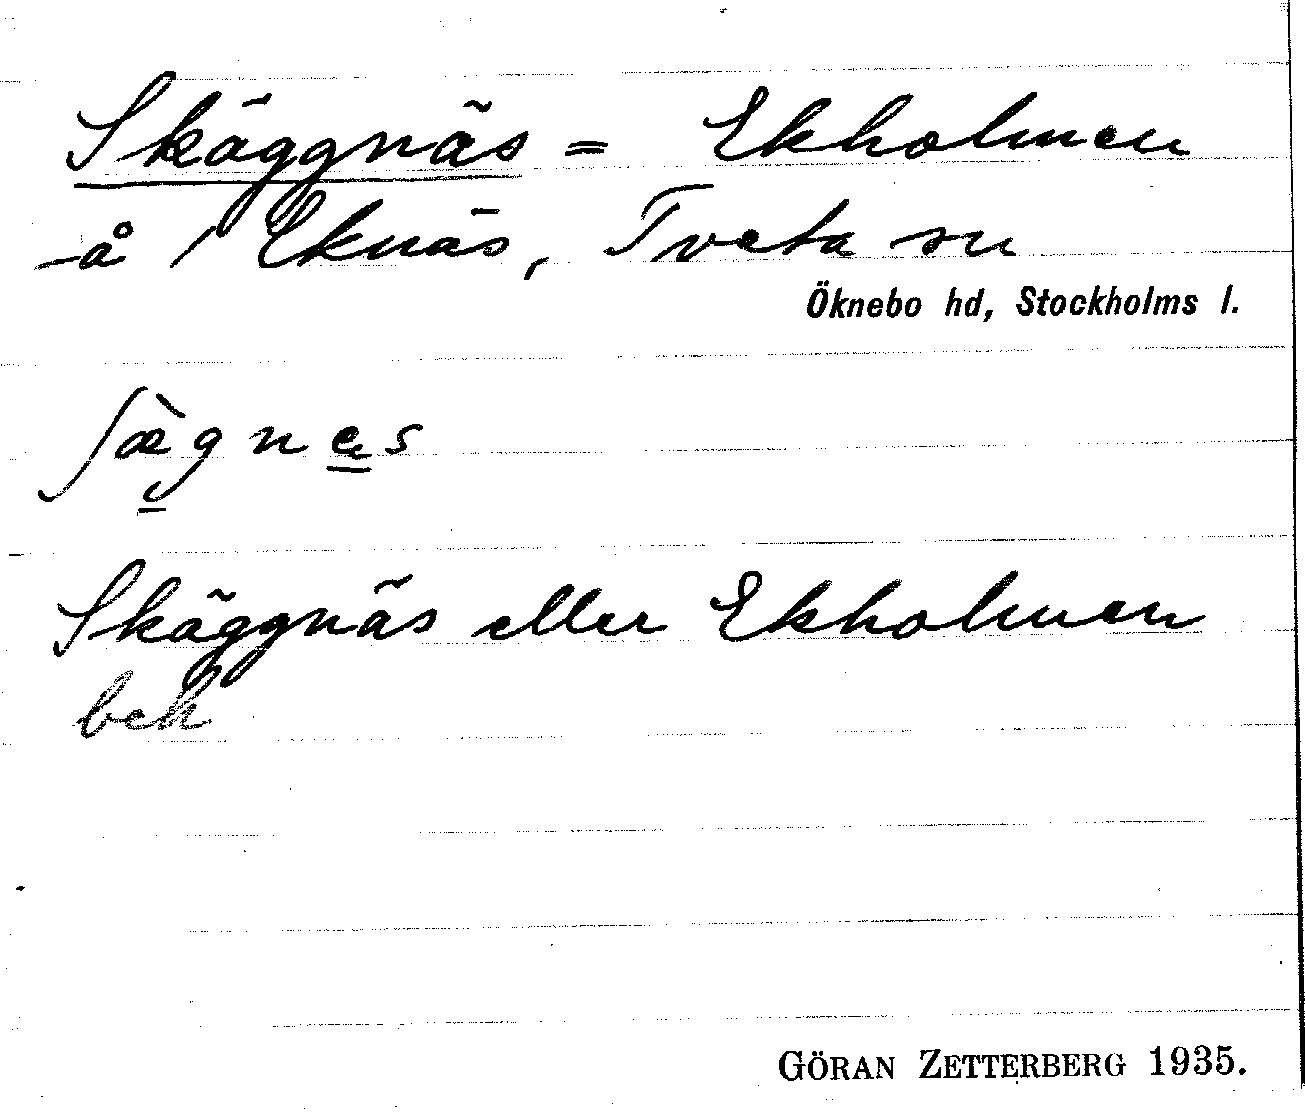 Skäggnäs = Ekholmen
å / Eknäs, Tveta sn
Öknebo hd, Stockholms l.
ʃæ̀gnes
Skäggnäs eller Ekholmen
beh
GÖRAN ZETTERBERG 1935.